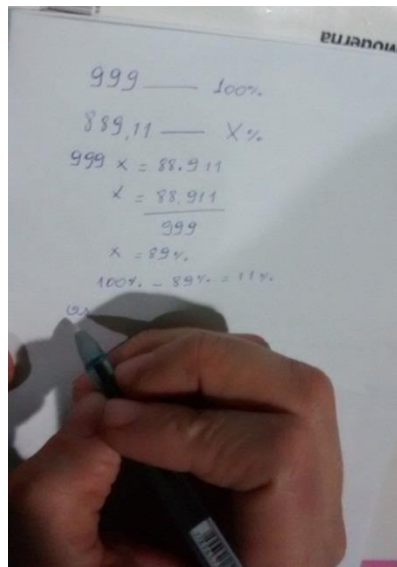 Moderna
999 —— 100%
889,11 —— X%
999 x = 88.911
x = 88.911
999
x = 89%
100% - 89% = 11%